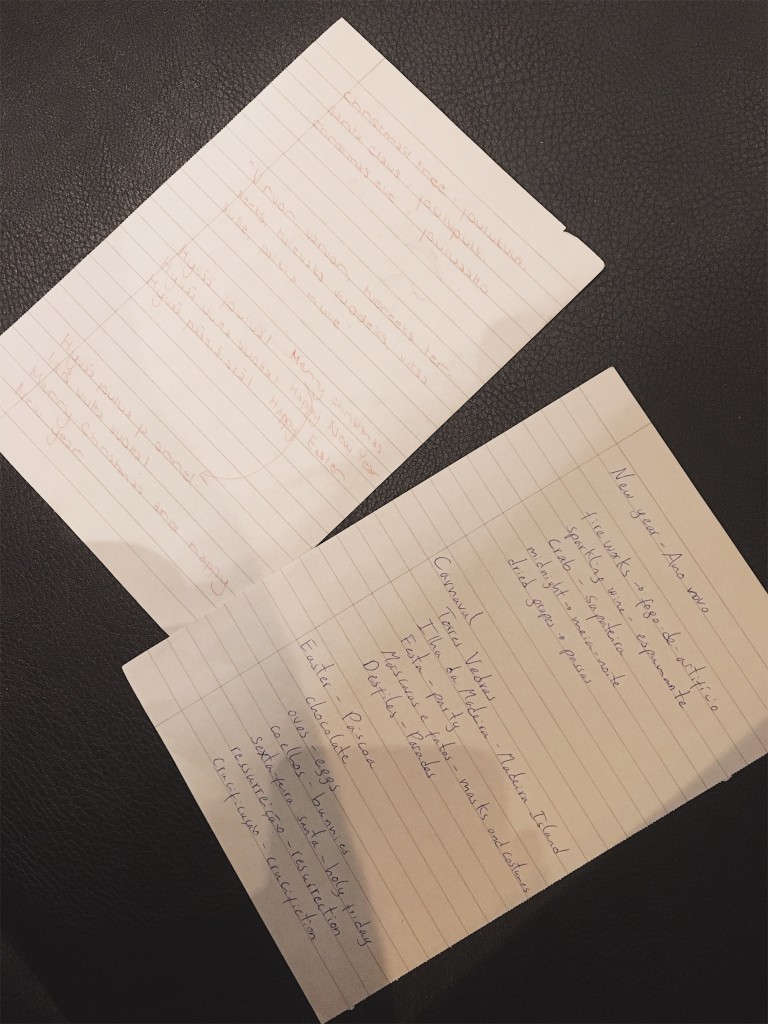 Christmas tree - joulukuusi
Santa claus - joulupukki
Christmas eve jouluaatto
"Virvon varvon tuoreeks ter
veeks tulevaks vuodeks, vitsa
sulle, palkka mulle"
Hyvää joulua! Merry christmas
Hyvää uutta vuotta! Happy New Year
Hyvää pääsiäistä! Happy Easter
Hyvää joulua ja onnel
uutta vuotta!
Merry Christmas and happy
New Year
New year - Ano novo
fireworks → fogo-de-artifício
sparkling wine - espumante
Crab - sapateira
midnight → meia-noite
dried grapes → passas
Carnaval
Torres Vedras
Ilha da Madeira - Madeira Island
Festa - party
Máscaras e fatos - masks and costumes
Desfiles - Parades
Easter - Páscoa
chocolate
ovos - eggs
coelhos - bunnies
sexta-feira santa - holy friday
ressurreição - resurrection
Crucificação - crucifiction